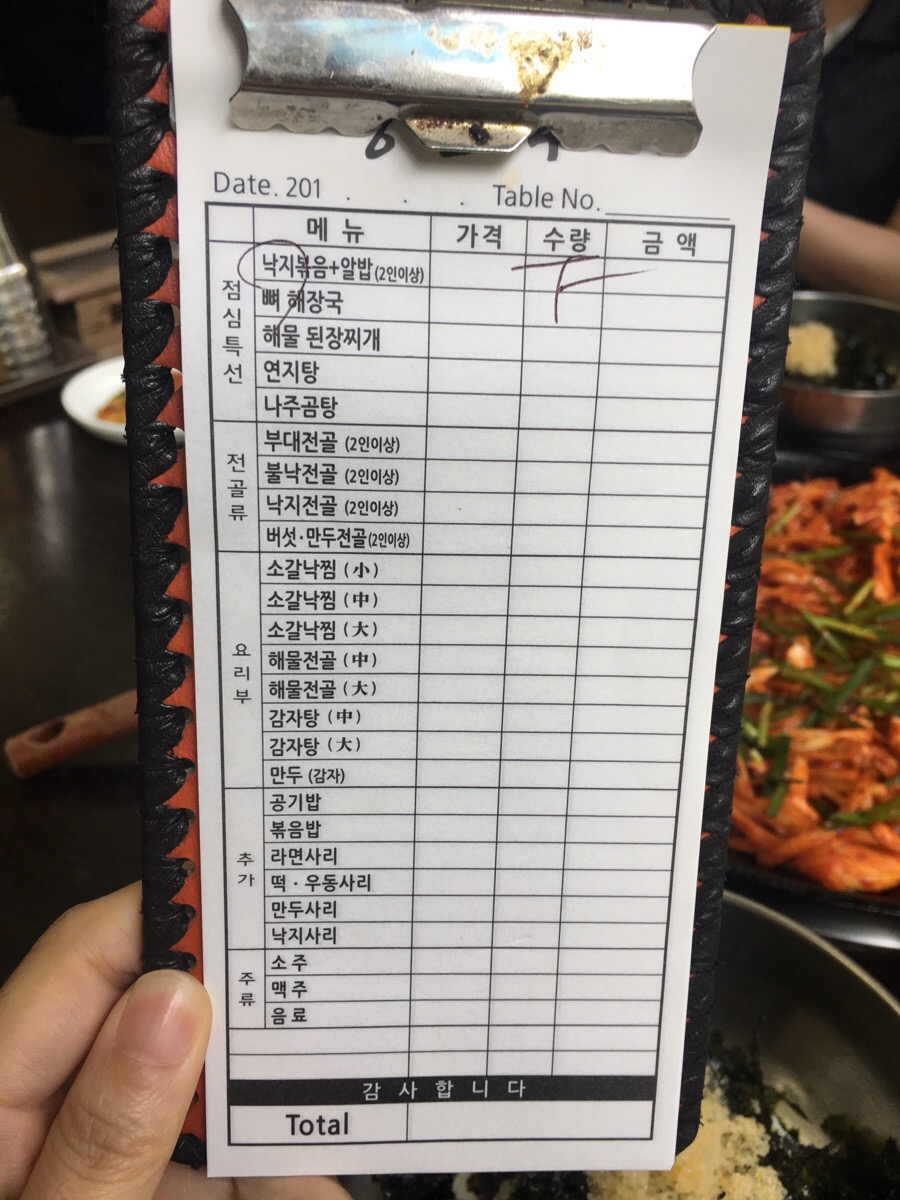 Date. 201 . . . Table No.
메 뉴 가격 수량 금 액
점심특선
낙지볶음+알밥(2인이상)
뼈 해장국
해물 된장찌개
연지탕
나주곰탕
전골류
부대전골 (2인이상)
불낙전골 (2인이상)
낙지전골 (2인이상)
버섯·만두전골(2인이상)
요리부
소갈낙찜 (小)
소갈낙찜 (中)
소갈낙찜 (大)
해물전골 (中)
해물전골 (大)
감자탕 (中)
감자탕 (大)
만두 (감자)
추가
공기밥
볶음밥
라면사리
떡 · 우동사리
만두사리
낙지사리
주류
소 주
맥 주
음 료
감 사 합 니 다
Total